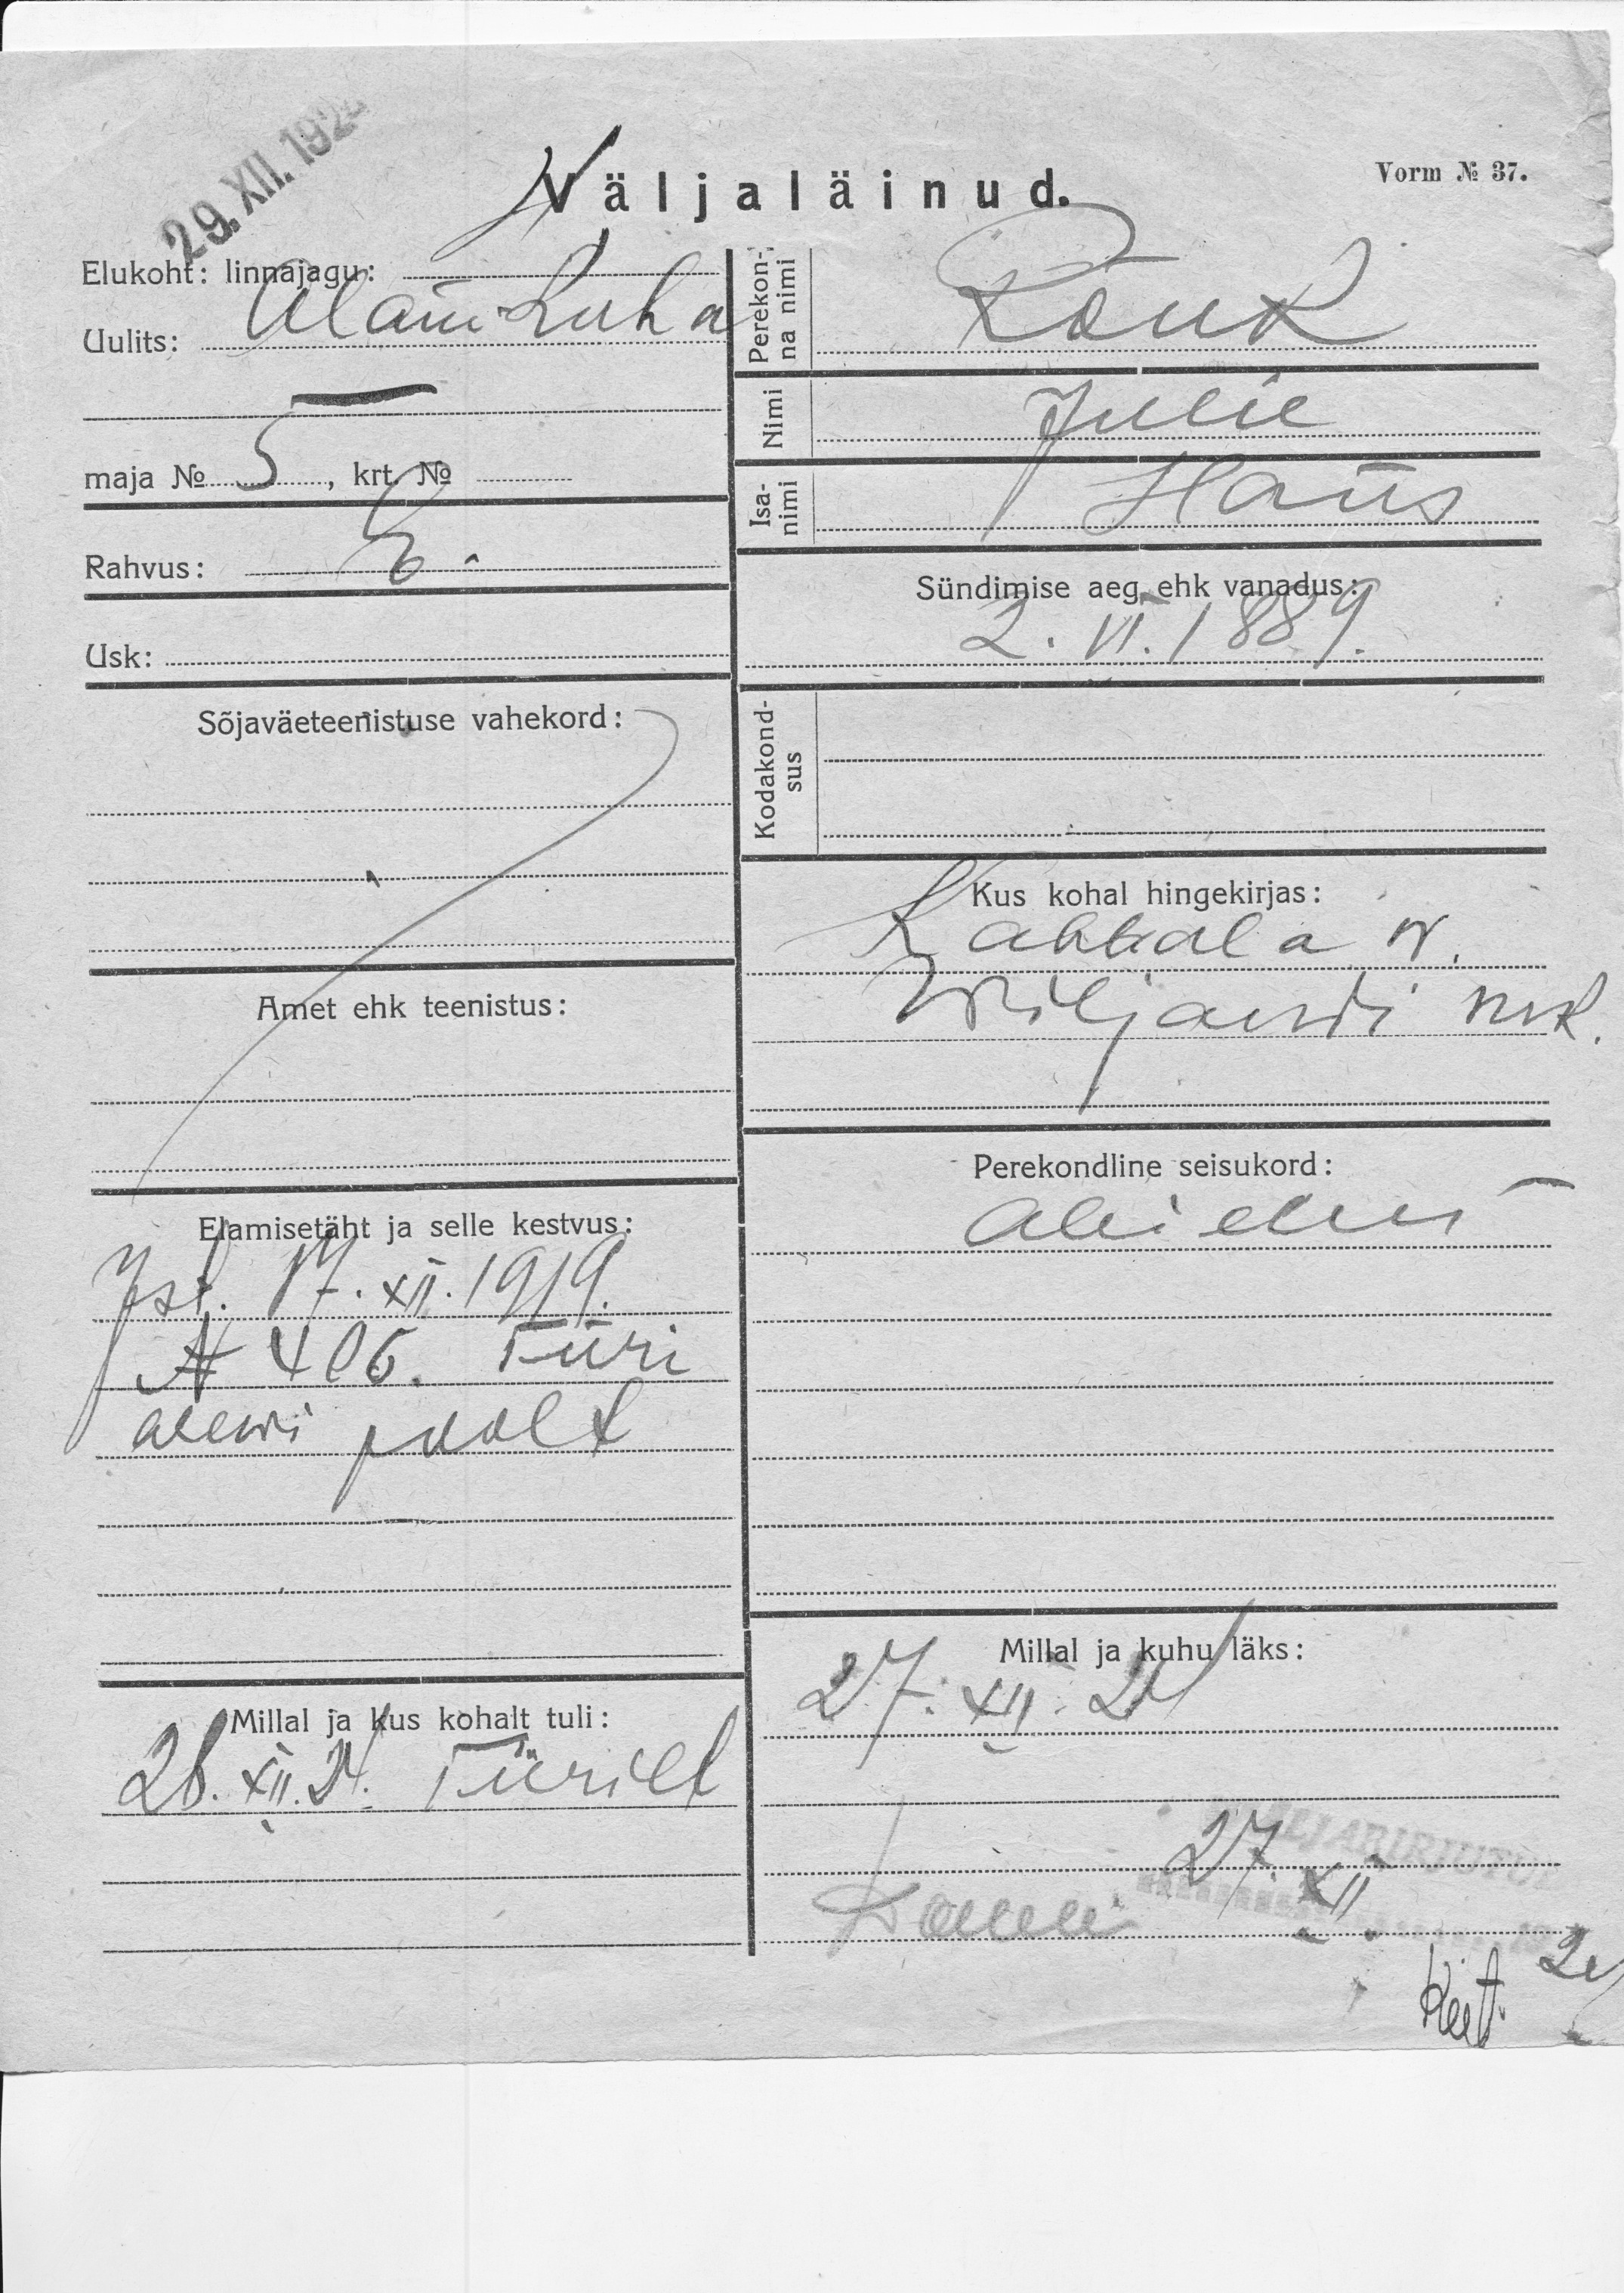 29. XII. 192
Väljaläinud.
Vorm № 37.
Elukoht: linnajagu:
Uulits: Alam Luha
maja № 5, krt. №
Rahvus: E.
Usk:
Sõjaväeteenistuse vahekord:
Amet ehk teenistus:
Elamisetäht ja selle kestvus:
Jst. 17. XII. 1919.
N 406. Türi
alewi poolt
Millal ja kus kohalt tuli:
26. XII. 24. Türilt
Perekon-
na nimi
Rõuk
Nimi Julie
Isa-
nimi
Hans
Sündimise aeg ehk vanadus:
2. VI. 1889.
Kodakond-
sus
Kus kohal hingekirjas:
Kabbala w.
Wiljandi mk.
Perekondline seisukord:
abielus
Millal ja kuhu läks:
27. XII. 24
27. XII
24